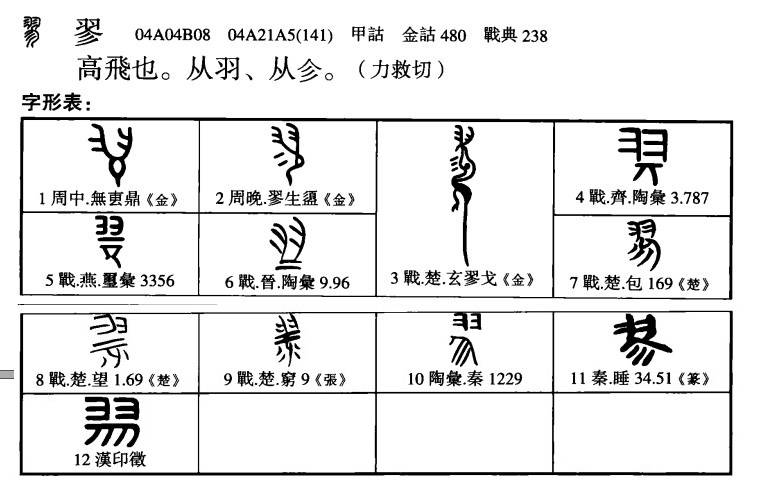 翏 04A04B08 04A21A5(141) 甲詁 金詁 480 戰典 238
高飛也。从羽、从㐱。（力救切）
字形表：
1 周中.無叀鼎《金》 2 周晚.翏生盨《金》 4 戰.齊.陶彙 3.787
5 戰.燕.璽彙 3356 6 戰.晉.陶彙 9.96 3 戰.楚.玄翏戈《金》 7 戰.楚.包 169《楚》
8 戰.楚.望 1.69《楚》 9 戰.楚.窮 9《張》 10 陶彙.秦 1229 11 秦.睡 34.51《篆》
12 漢印徵